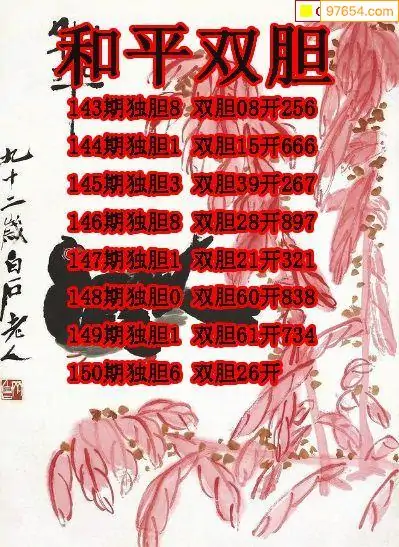 97654.com
和平双胆
143期独胆8 双胆08开256
144期独胆1 双胆15开666
145期独胆3 双胆39开267
146期独胆8 双胆28开897
147期独胆1 双胆21开321
148期独胆0 双胆60开838
149期独胆1 双胆61开734
150期独胆6 双胆26开
九十二岁白石老人